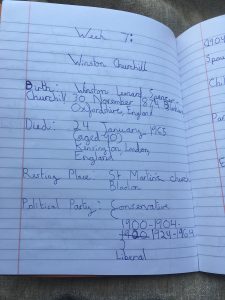 Week 7:
Winston Churchill
Birth: Winston Leonard Spencer-
Churchill 30 November 1874
Oxfordshire, England
Died: 24 January 1965
(aged 90)
Kensington London,
England
Resting Place: St Martin's Church
Bladon
Political Party: Conservative
1900-1904
1924-1964
Liberal
1904
Spou
Chil
Pa